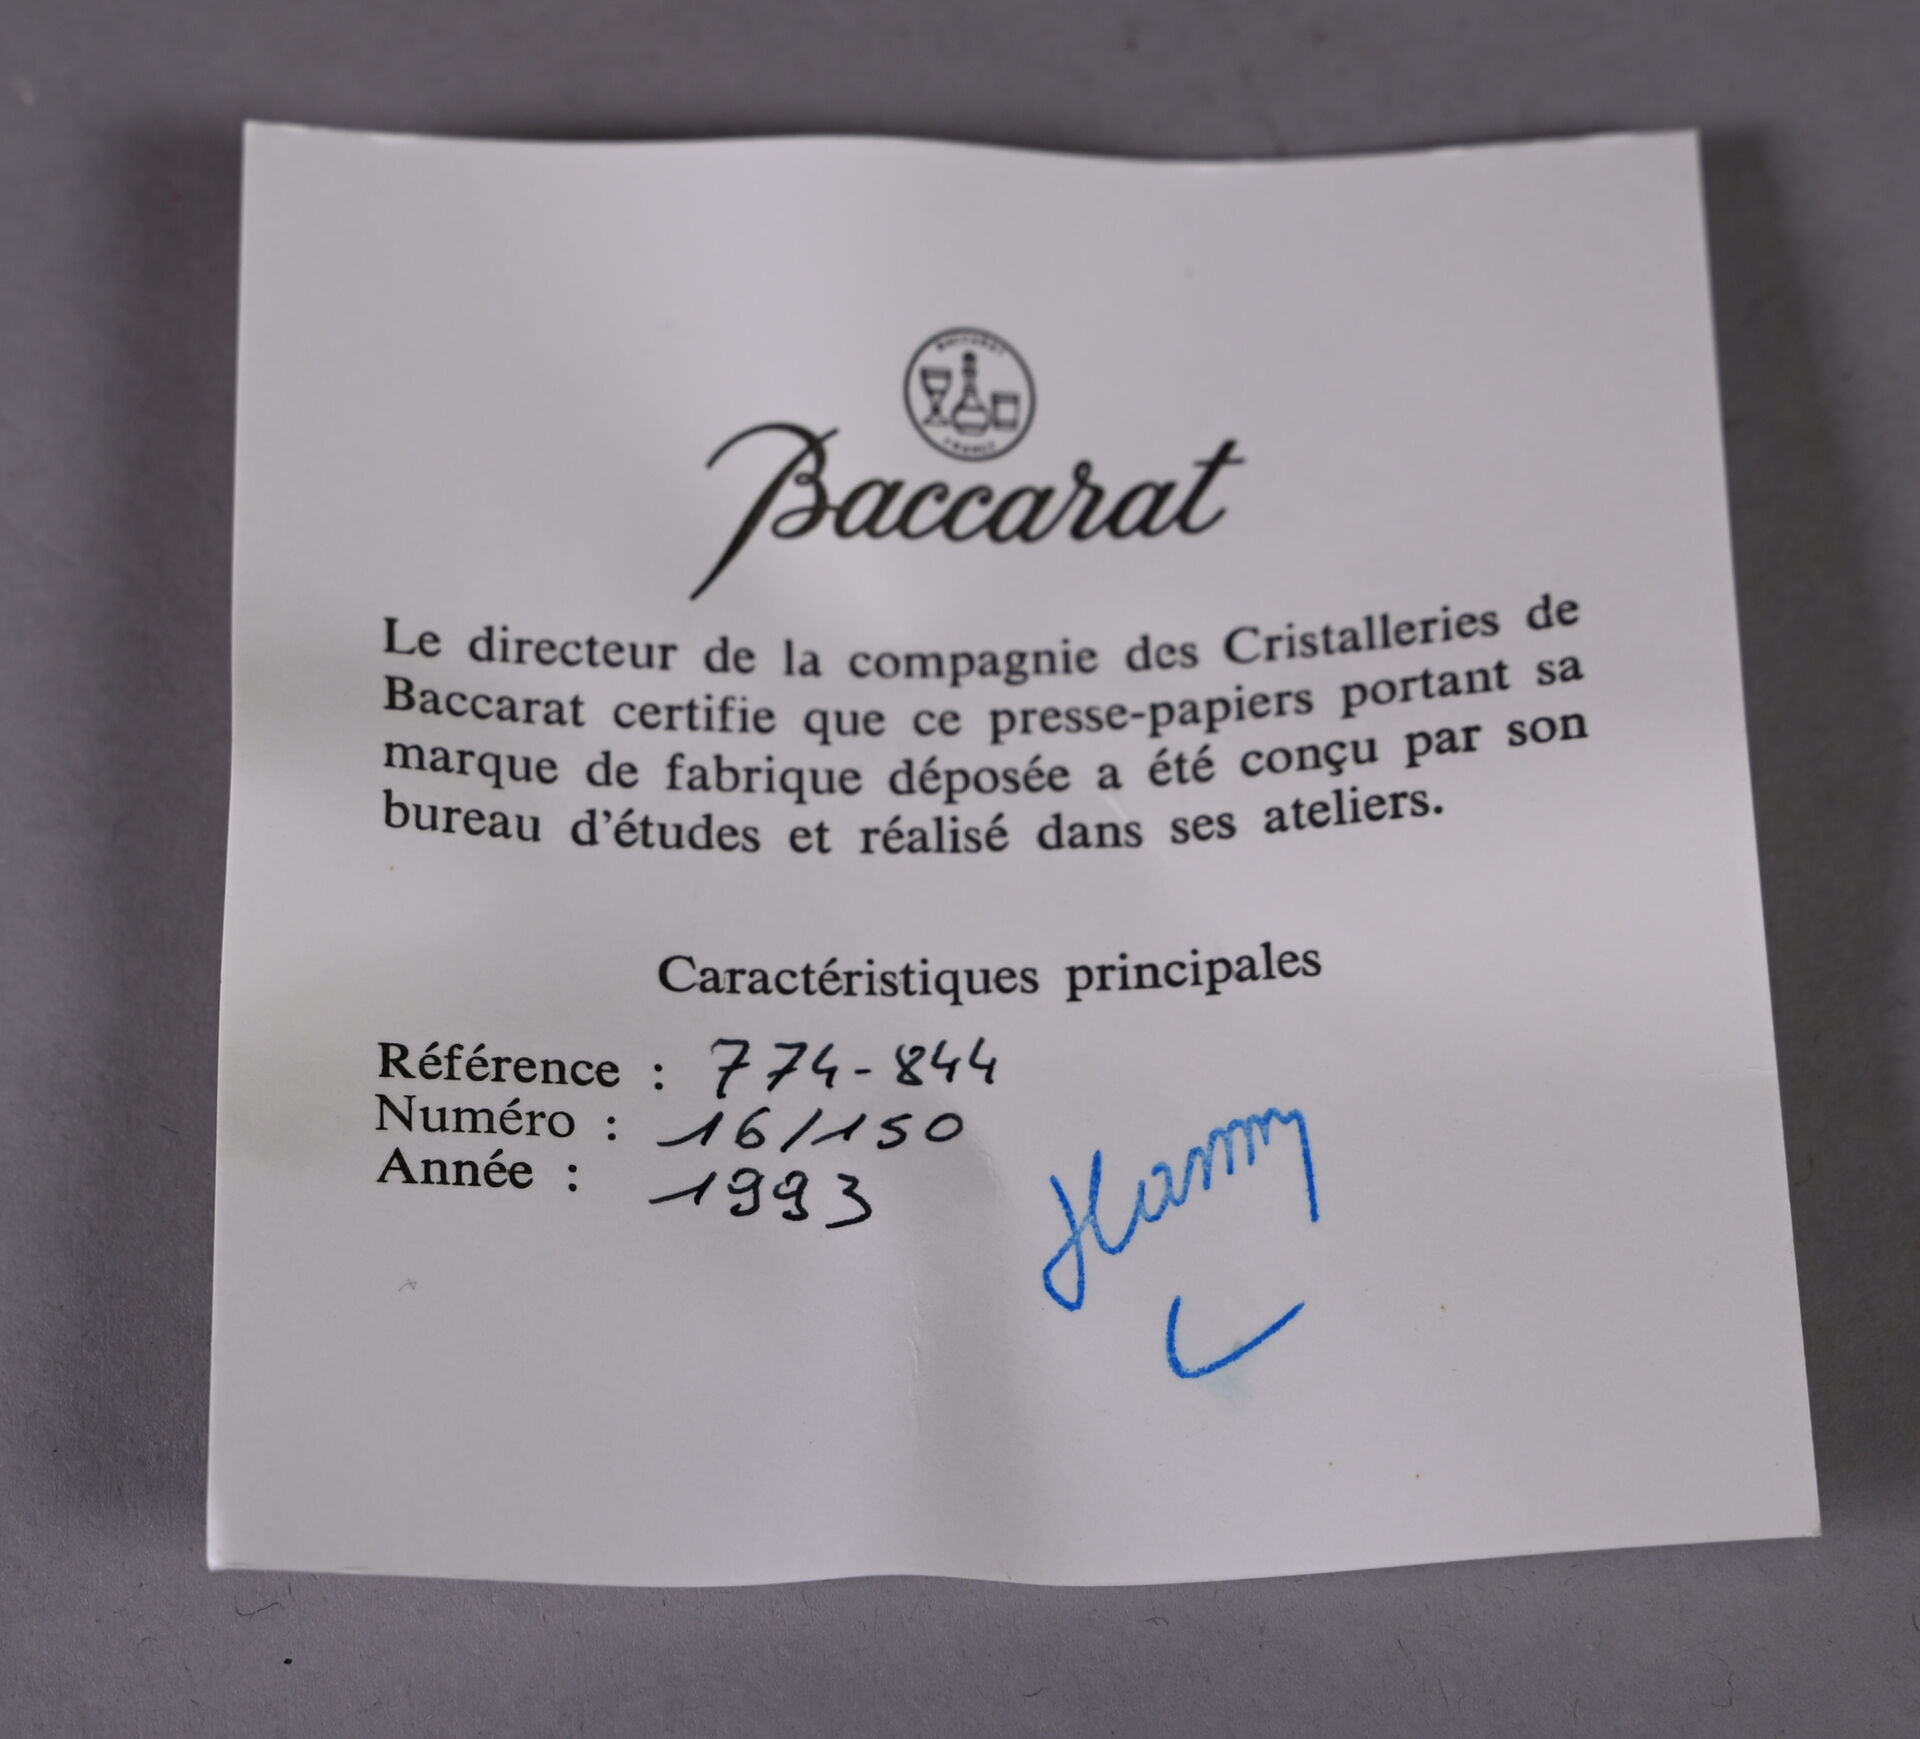 BACCARAT
FRANCE
Baccarat
Le directeur de la compagnie des Cristalleries de
Baccarat certifie que ce presse-papiers portant sa
marque de fabrique déposée a été conçu par son
bureau d'études et réalisé dans ses ateliers.
Caractéristiques principales
Référence : 774-844
Numéro : 16/150
Année : 1993